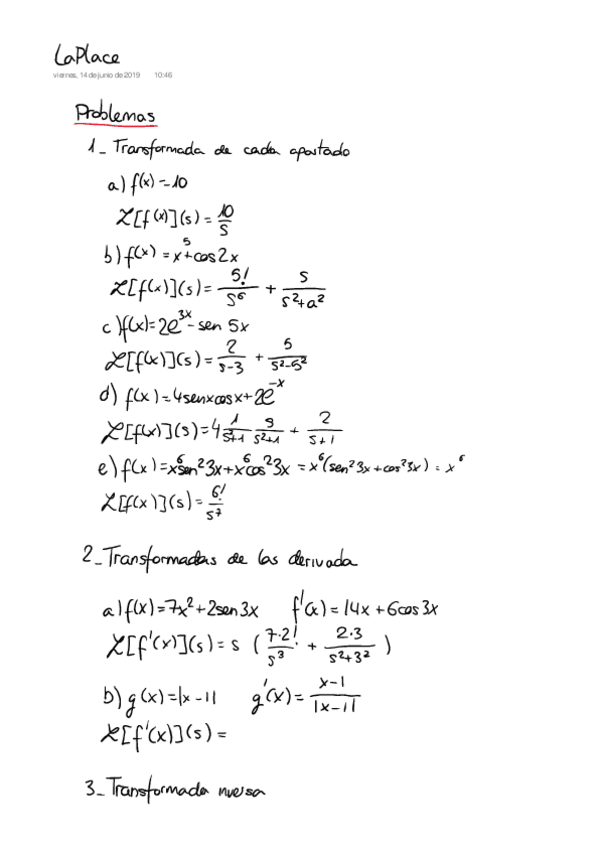 LaPlace
viernes, 14 de junio de 2019 10:46
Problemas
1_ Transformada de cada apartado
a) f(x) = 10
ℒ[f(x)](s) = 10/s
b) f(x) = x^5 + cos 2x
ℒ[f(x)](s) = 5!/s^6 + s/(s^2+a^2)
c) f(x) = 2e^{3x} - sen 5x
ℒ[f(x)](s) = 2/(s-3) + 5/(s^2-5^2)
d) f(x) = 4senxcosx + 2e^{-x}
ℒ[f(x)](s) = 4 1/(s^2+1) s/(s^2+1) + 2/(s+1)
e) f(x) = x^6 sen^2 3x + x^6 cos^2 3x = x^6 (sen^2 3x + cos^2 3x) = x^6
ℒ[f(x)](s) = 6!/s^7
2_ Transformadas de las derivada
a) f(x) = 7x^2 + 2sen 3x f'(x) = 14x + 6cos 3x
ℒ[f'(x)](s) = s (7·2!/s^3 + 2·3/(s^2+3^2))
b) g(x) = |x-1| g'(x) = (x-1)/|x-1|
ℒ[f'(x)](s) =
3_ Transformada inversa